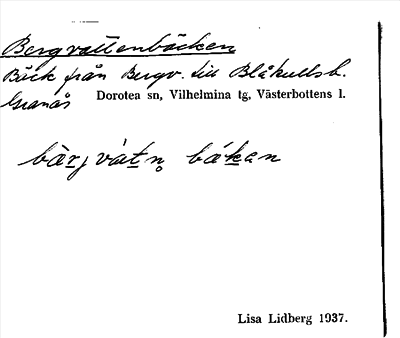 Bergvattenbäcken
Bäck från Bergv. till Blåkullsb.
Granås Dorotea sn, Vilhelmina tg, Västerbottens l.
bàrjvátn̥ bákan
Lisa Lidberg 1937.